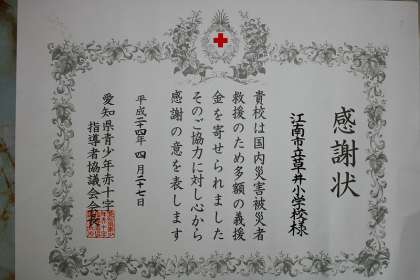 感謝状
江南市立草井小学校様
貴校は国内災害被災者
救援のため多額の義援
金を寄せられました
そのご協力に対し心から
感謝の意を表します
平成二十四年 四月二十七日
愛知県青少年赤十字
指導者協議会会長